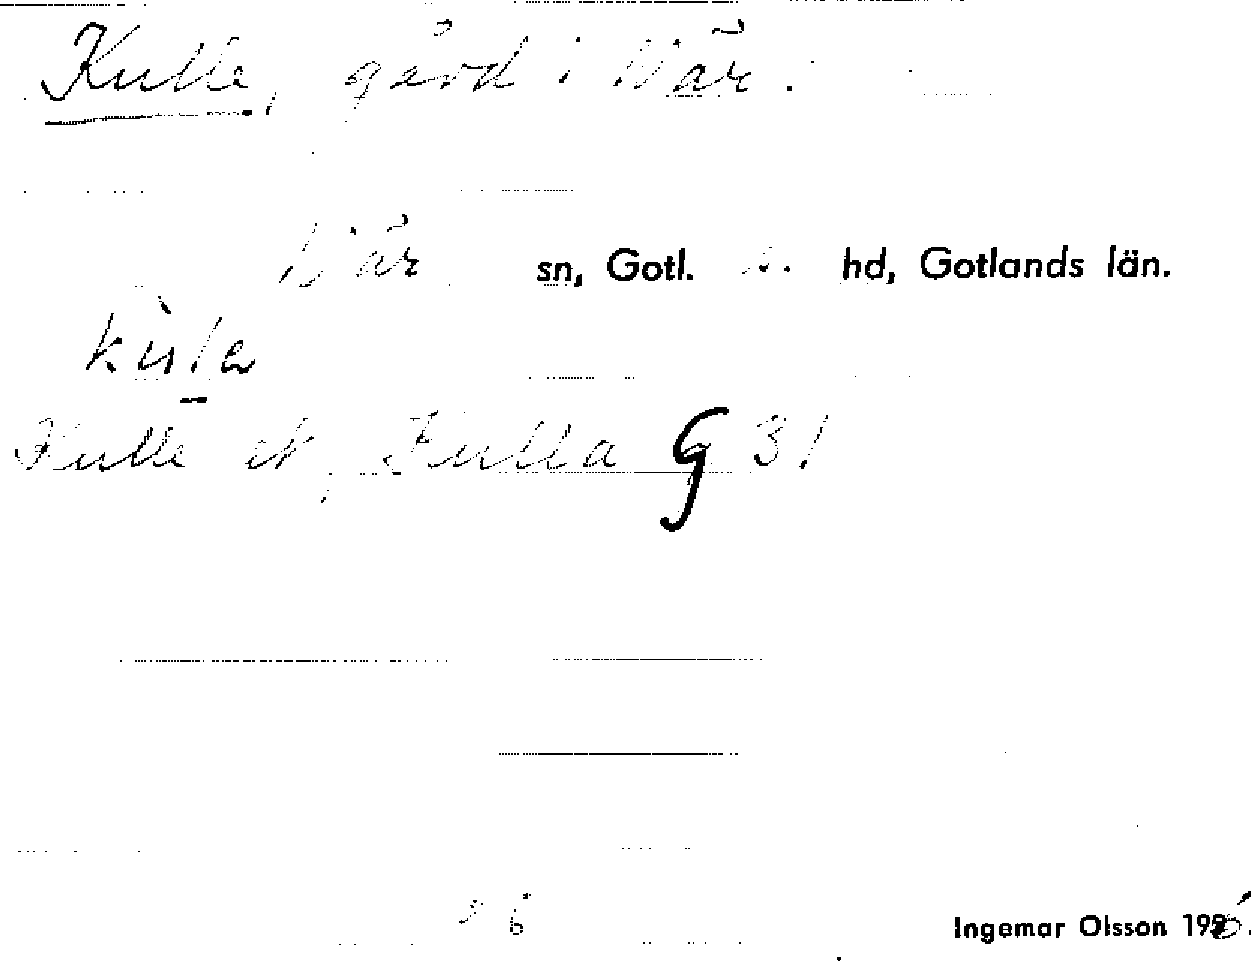 Kulle, gård i När.
När sn, Gotl. s. hd, Gotlands län.
Kulle et, Kulla G 31
Ingemar Olsson 1926.